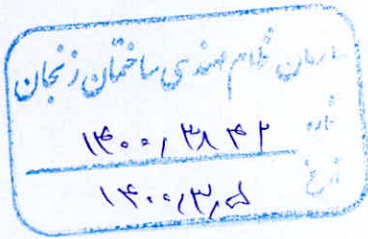 سازمان نظام مهندسی ساختمان زنجان
شماره ۱۴۰۰/۳۸۴۲
تاریخ ۱۴۰۰/۳/۵